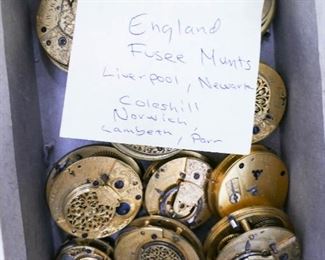 England
Fusee Mvnts
Liverpool, Newark
Coleshill
Norwich,
Lambeth, Parr